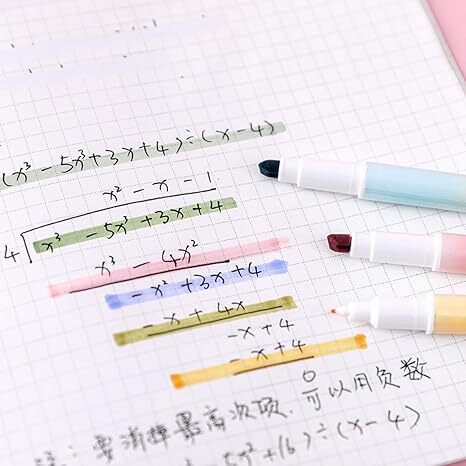 (x³ - 5x³ + 3x + 4) ÷ (x - 4)
x² - x - 1
4 x³ - 5x³ + 3x + 4
x³ - 4x²
- x² + 3x + 4
- x + 4x
- x + 4
- x + 4
0
注: 要消掉最高次项. 可以用负数
5x² + 16) ÷ (x - 4)